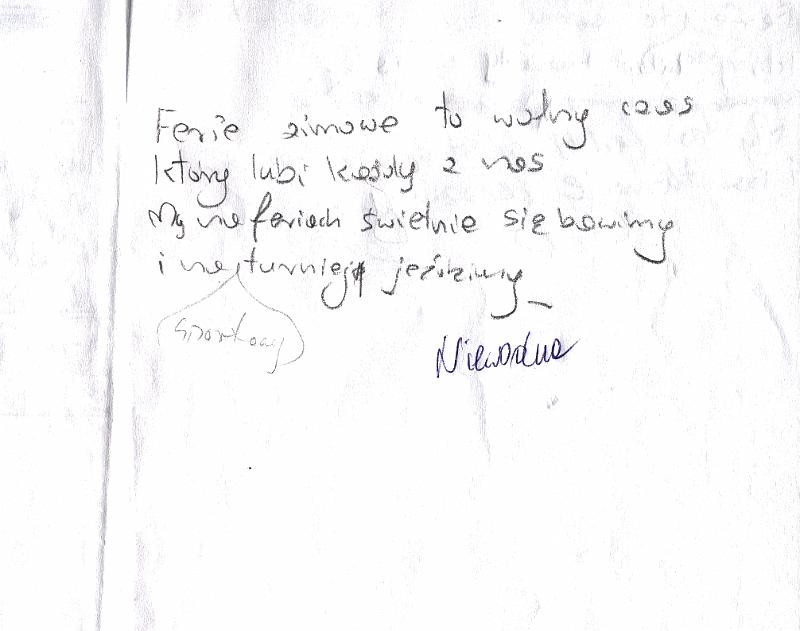 Ferie zimowe to wolny czas
który lubi każdy z nas
My na feriach świetnie się bawimy
i na turnieje jeździmy
sportowy